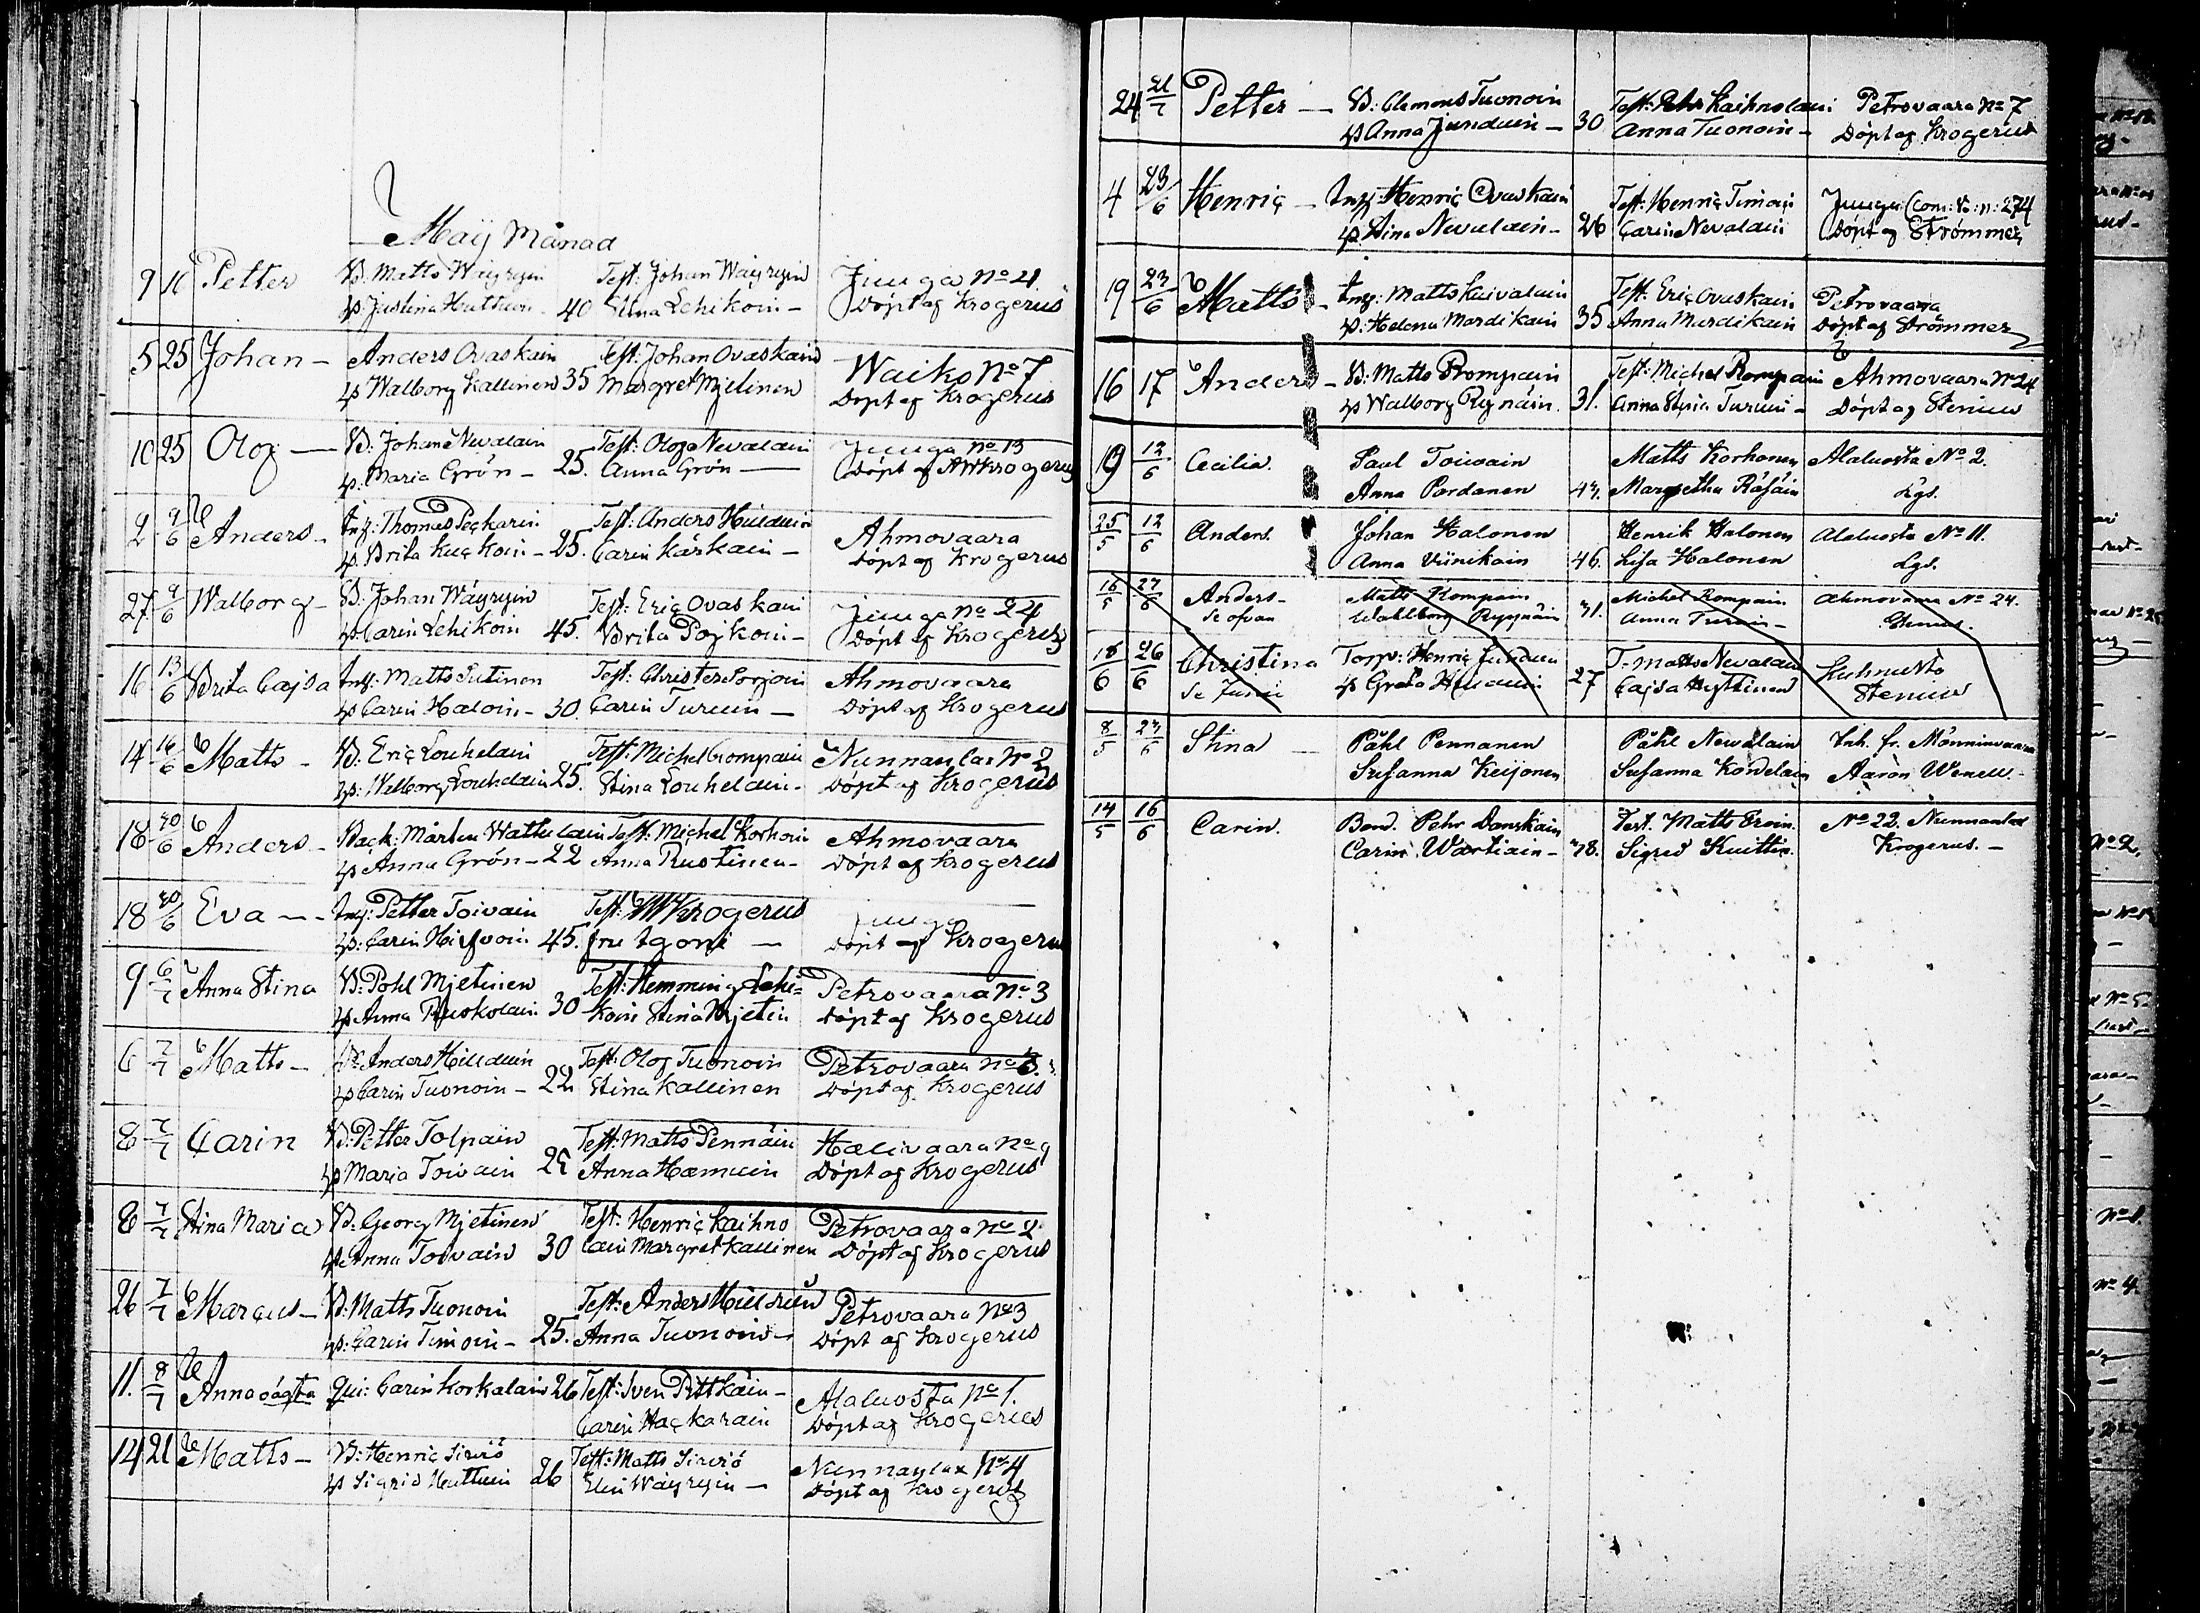 Maij Månad
9 11 Petter B: Matts Wäyryin Test: Johan Wäyryin Juuga No 4
h: Justina Huttuin - 40 Stina Lehikoin - Döpt af Krogerus
5 25 Johan - Anders Ovaskain Test: Johan Ovaskain Waiko No 7
h: Walborg Kallinen 35 Margret Mjetinen Döpt af Krogerus
10 25 Olof - B: Johan Nevalain Test: Olof Nevalain Juuga No 13
h: Maria Grön - 25. Anna Grön - Döpt af Krogerus
2 9/6 Anders - Inh: Thomas Peckarin Test: Anders Hiilduin Ahmovaara
h: Brita Kuckoin - 25. Carin Kärkäin - Döpt af Krogerus
27 9/6 Walborg - B: Johan Wäyryin Test: Eric Ovaskain Juuga No 24
h: Carin Lehikoin 45. Brita Pojkoin - Döpt af Krogerus
16 13/6 Brita Cajsa Inh: Matts Sutinen Test: Christer Sorjoin Ahmovaara
h: Carin Haloin - 30. Carin Turuin - Döpt af Krogerus
14 16/6 Matts - B: Eric Louhelain Test: Michel Rompain Nunnanlax No 2
h: Walborg Louhelain 25. Stina Louhelain - Döpt af Krogerus
18 20/6 Anders - Back: Mårten Wattulain Test: Michel Korhoin Ahmovaara
h: Anna Grön - 22 Anna Rustinen - Döpt af Krogerus
18 20/6 Eva - Inh: Petter Toivain Test: Krogerus Juuga
h: Carin Hirfvoin 45. fru Agoni - Döpt af Krogerus
9 6/7 Anna Stina B: Pohl Mjetinen Test: Hemming Lehi= Petrovaara No 3
h: Anna Ruskolain 30 koin Stina Mjetin Döpt af Krogerus
6 7/7 Matts - B: Anders Hiilduin Test: Olof Tuonoin Petrovaara No 3
h: Carin Tuonoin - 22 Stina Kallinen Döpt af Krogerus
8 7/7 Carin B: Petter Tolpain Test: Matts Pennäin Halivaara No 9
h: Maria Toivain 25 Anna Hämuin Döpt af Krogerus
8 7/7 Stina Maria B: Georg Mjetinen Test: Henric Kaihno Petrovaara No 2
h: Anna Toivain 30 lain Margret Kallinen Döpt af Krogerus
26 7/7 Marcus - B: Matts Tuonoin Test: Anders Hiilduin Petrovaara No 3
h: Carin Timoin - 25. Anna Tuonoin - Döpt af Krogerus
11. 8/7 Anna oägta Qui: Carin Korkalain 26 Test: Sven Pittkäin - Alaluosta No 1.
Carin Hackarain Döpt af Krogerus
14 21 Matts - B: Henric Sirviö Test: Matts Sirviö Nunnanlax No 4
h: Sigrid Huttuin 26 Elin Wäyryin - Döpt af Krogerus
24 21/7 Petter - B: Clemens Tuonoin Test: Pehr Kaihnolain Petrovaara No 7
h: Anna Junduin - 30 Anna Tuonoin - Döpt af Krogerus
4 23/6 Henric - Inh: Henric Ovaskain Test: Henric Timoin Juuga Com: B: n: 274
h: Stina Nevalain - 26 Carin Nevalain Döpt af Strömmer
19 23/6 Matts - Inh: Matts Kuivalain Test: Eric Ovaskain Petrovaara
h: Helena Mardikain 35 Anna Mardikain Döpt af Strömmer
16 17 Anders - B: Matts Rompain Test: Michel Rompain Ahmovaara No 24
h: Walborg Rynäin. 31. Anna Stina Turuin - Döpt af Stenius
19 12/6 Cecilia. Paul Toiwain Matts Korhonen Alaluosta No 2.
Anna Pardanen 43. Margetha Räsäin Lgs.
25/5 12/6 Anders. Johan Halonen Henrik Halonen Alaluosta No 11.
Anna Viinikain 46. Lisa Halonen Lgs.
16/5 27/6 Anders - Matts Rompain Michel Rompain Ahmovaara No 24.
Se ofvan Wahlborg Ryynäin 31. Anna Turuin - Stenius.
18/6 26/6 Christina Torp: Henric Junduin T - Matts Nevalain Kuhnusto
Se Junii h: Greta Hiilduin 27 Cajsa Hyttinen Stenius
8/5 23/6 Stina - Påhl Pennanen Påhl Newalain Inh. fr. Mönninvaara
Susanna Keijonen Susanna Kordelain Aaron Wenell. -
14/5 16/6 Carin. Bond. Pehr Danskain Test. Matts Eroin. No 22. Nunnanlax
Carin Wartiain - 38. Sigred Kuittin. Krogerus. -